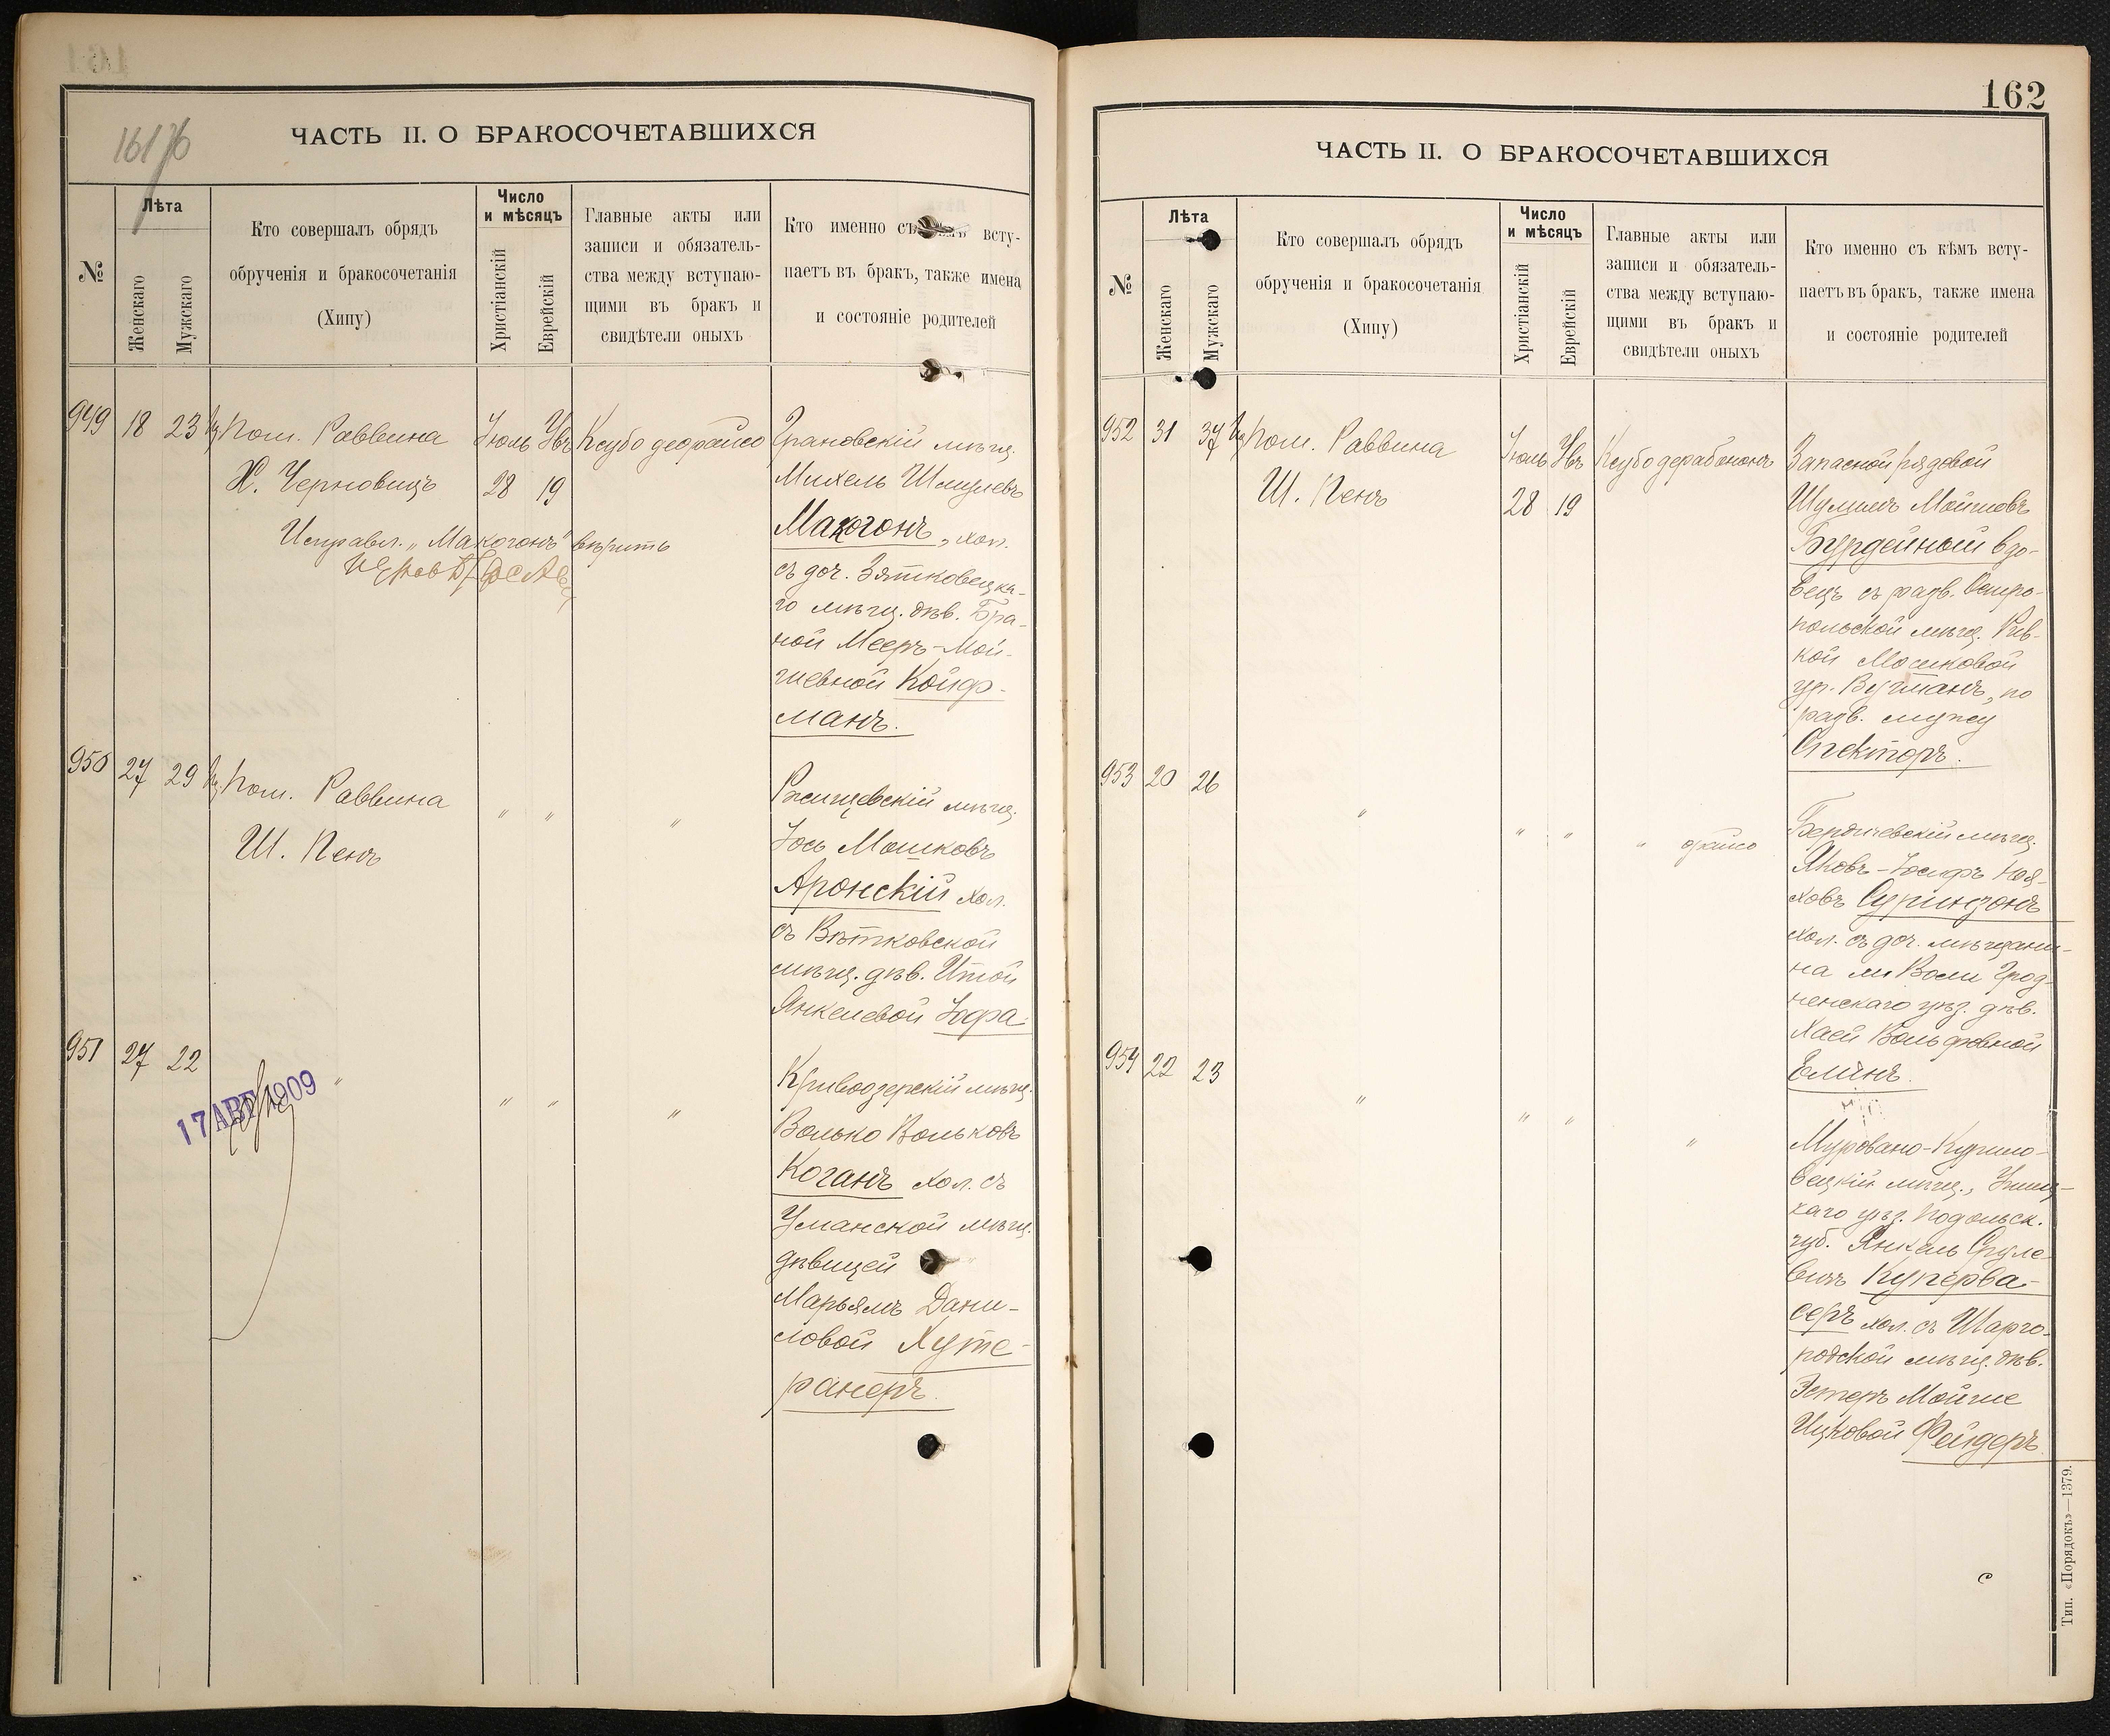 161 76
ЧАСТЬ II. О БРАКОСОЧЕТАВШИХСЯ
№
Лѣта
Женскаго
Мужскаго
Кто совершалъ обрядъ
обрученія и бракосочетанія
(Хипу)
Число
и мѣсяцъ
Христіанскій
Еврейскій
Главные акты или
записи и обязатель-
ства между вступаю-
щими въ бракъ и
свидѣтели оныхъ
Кто именно съ всту-
паетъ въ бракъ, также имена
и состояніе родителей
949 18 23
Пом. Раввина
Х. Черновицъ
Іюль Явъ
28 19
Ксубо деорайсо
Исправл. „Макогонъ" вѣрить
Грановскій мѣщ.
Михель Шмулевъ
Макогонъ, хол.
съ доч. Зятковецка-
го мѣщ. дѣв. Бра-
ной Мееръ-Мой-
шевной Койф-
манъ.
950 27 29
Пом. Раввина
Ш. Пенъ
" " "
Ржищевскій мѣщ.
Іось Мошковъ
Аронскій хол.
съ Вѣтковской
мѣщ. дѣв. Итой
Янкелевой Іофа.
951 27 22
17 АВГ 1909
" " " "
Кривоозерскій мѣщ.
Волько Вольковъ
Коганъ хол. съ
Уманской мѣщ.
дѣвицей
Марьямъ Дани-
ловой Хуте-
ранеръ.
162
ЧАСТЬ II. О БРАКОСОЧЕТАВШИХСЯ
№
Лѣта
Женскаго
Мужскаго
Кто совершалъ обрядъ
обрученія и бракосочетанія
(Хипу)
Число
и мѣсяцъ
Христіанскій
Еврейскій
Главные акты или
записи и обязатель-
ства между вступаю-
щими въ бракъ и
свидѣтели оныхъ
Кто именно съ кѣмъ всту-
паетъ въ бракъ, также имена
и состояніе родителей
952 31 37
Пом. Раввина
Ш. Пенъ
Іюль Явъ
28 19
Ксубо дерабононъ
Запасной рядовой
Шулимъ Мойшовъ
Бурдейный вдо-
вецъ съ разв. Остро-
польской мѣщ. Рив-
кой Мошковой
ур. Вугманъ, по
разв. мужу
Спекторъ.
953 20 26
" " " " орайсо
Бердичевскій мѣщ.
Яковъ-Іосифъ Ноя-
ховъ Супинзонъ
хол. съ доч. мѣщани-
на м. Воли Грод-
ненскаго уѣз. дѣв.
Хаей Вольфовной
Елинъ.
954 22 23
" " " "
Муровано-Курило-
вецкій мѣщ., Ушиц-
каго уѣз. Подольск.
губ. Янкель Сруле-
вичъ Куперва-
серъ хол. съ Шарго-
родской мѣщ. дѣв.
Эстеръ Мойше
Ицковой Фейдеръ.
Тип. «Порядокъ»—1379.